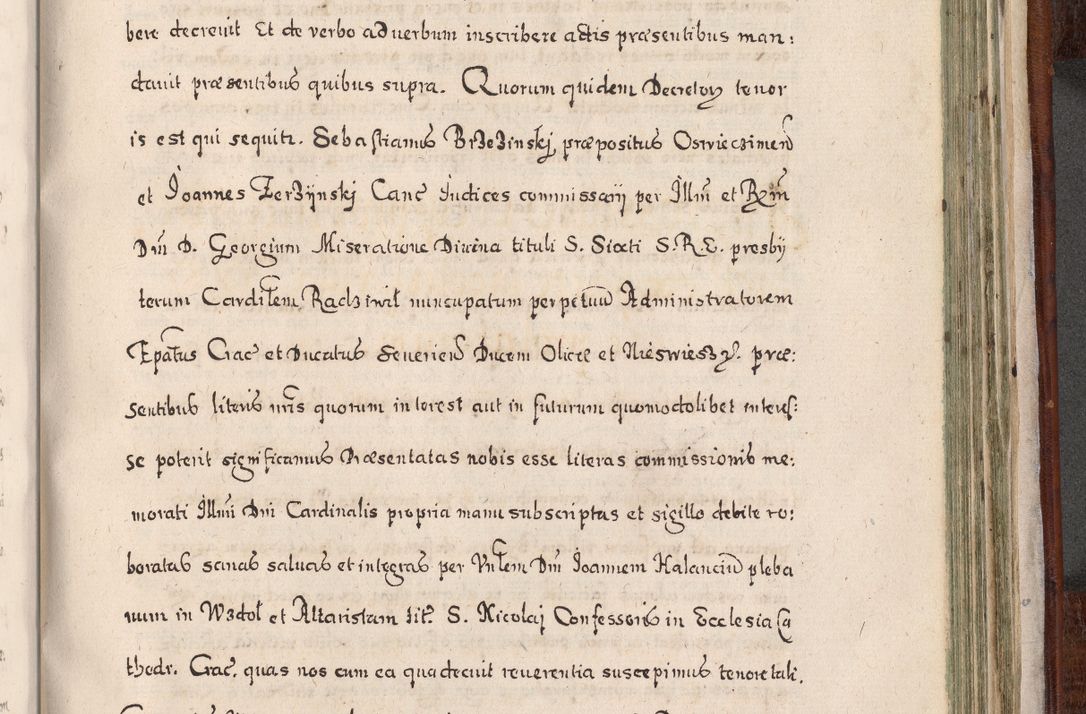 bere decreuit Et de verbo ad uerbum inscribere actis præsentibus man:
dauit præsentibus quibus supra. Quorum quidem Decretoꝝ tenor
is est qui sequitr. Sebastianus Brzezinskj præpositus Oswieczimen̄
et Joannes Zerzÿnskj Canc Judices commissarÿ per Illm̄ et Rm̄
Dn̄i D. Georgium Miseratione Diuina tituli S. Sixti S.R.E. presby
terum Cardilem Radziwił nuncupatum perpetuū Administratorem
Epatus Crac et Ducatus Seuerien̄ Ducem Olicæ et Nieswiesz ꝛc. præ:
sentibus literis nr̄is quorum interest aut in futurum quomodolibet interes:
se poterit significamus Præsentatas nobis esse literas commissionis me:
morati Illmi Dni Cardinalis propria manu subscriptas et sigillo debite ro:
boratas sanas saluas et integras per Vnlem Dn̄ Joannem Kalanciū pleba
num in Wzdoł et Altaristam tit. S. Nicolaj Confessoris in Ecclesia Ca
thedr. Crac. quas nos cum ea qua decuit reuerentia suscepimus tenore tali.